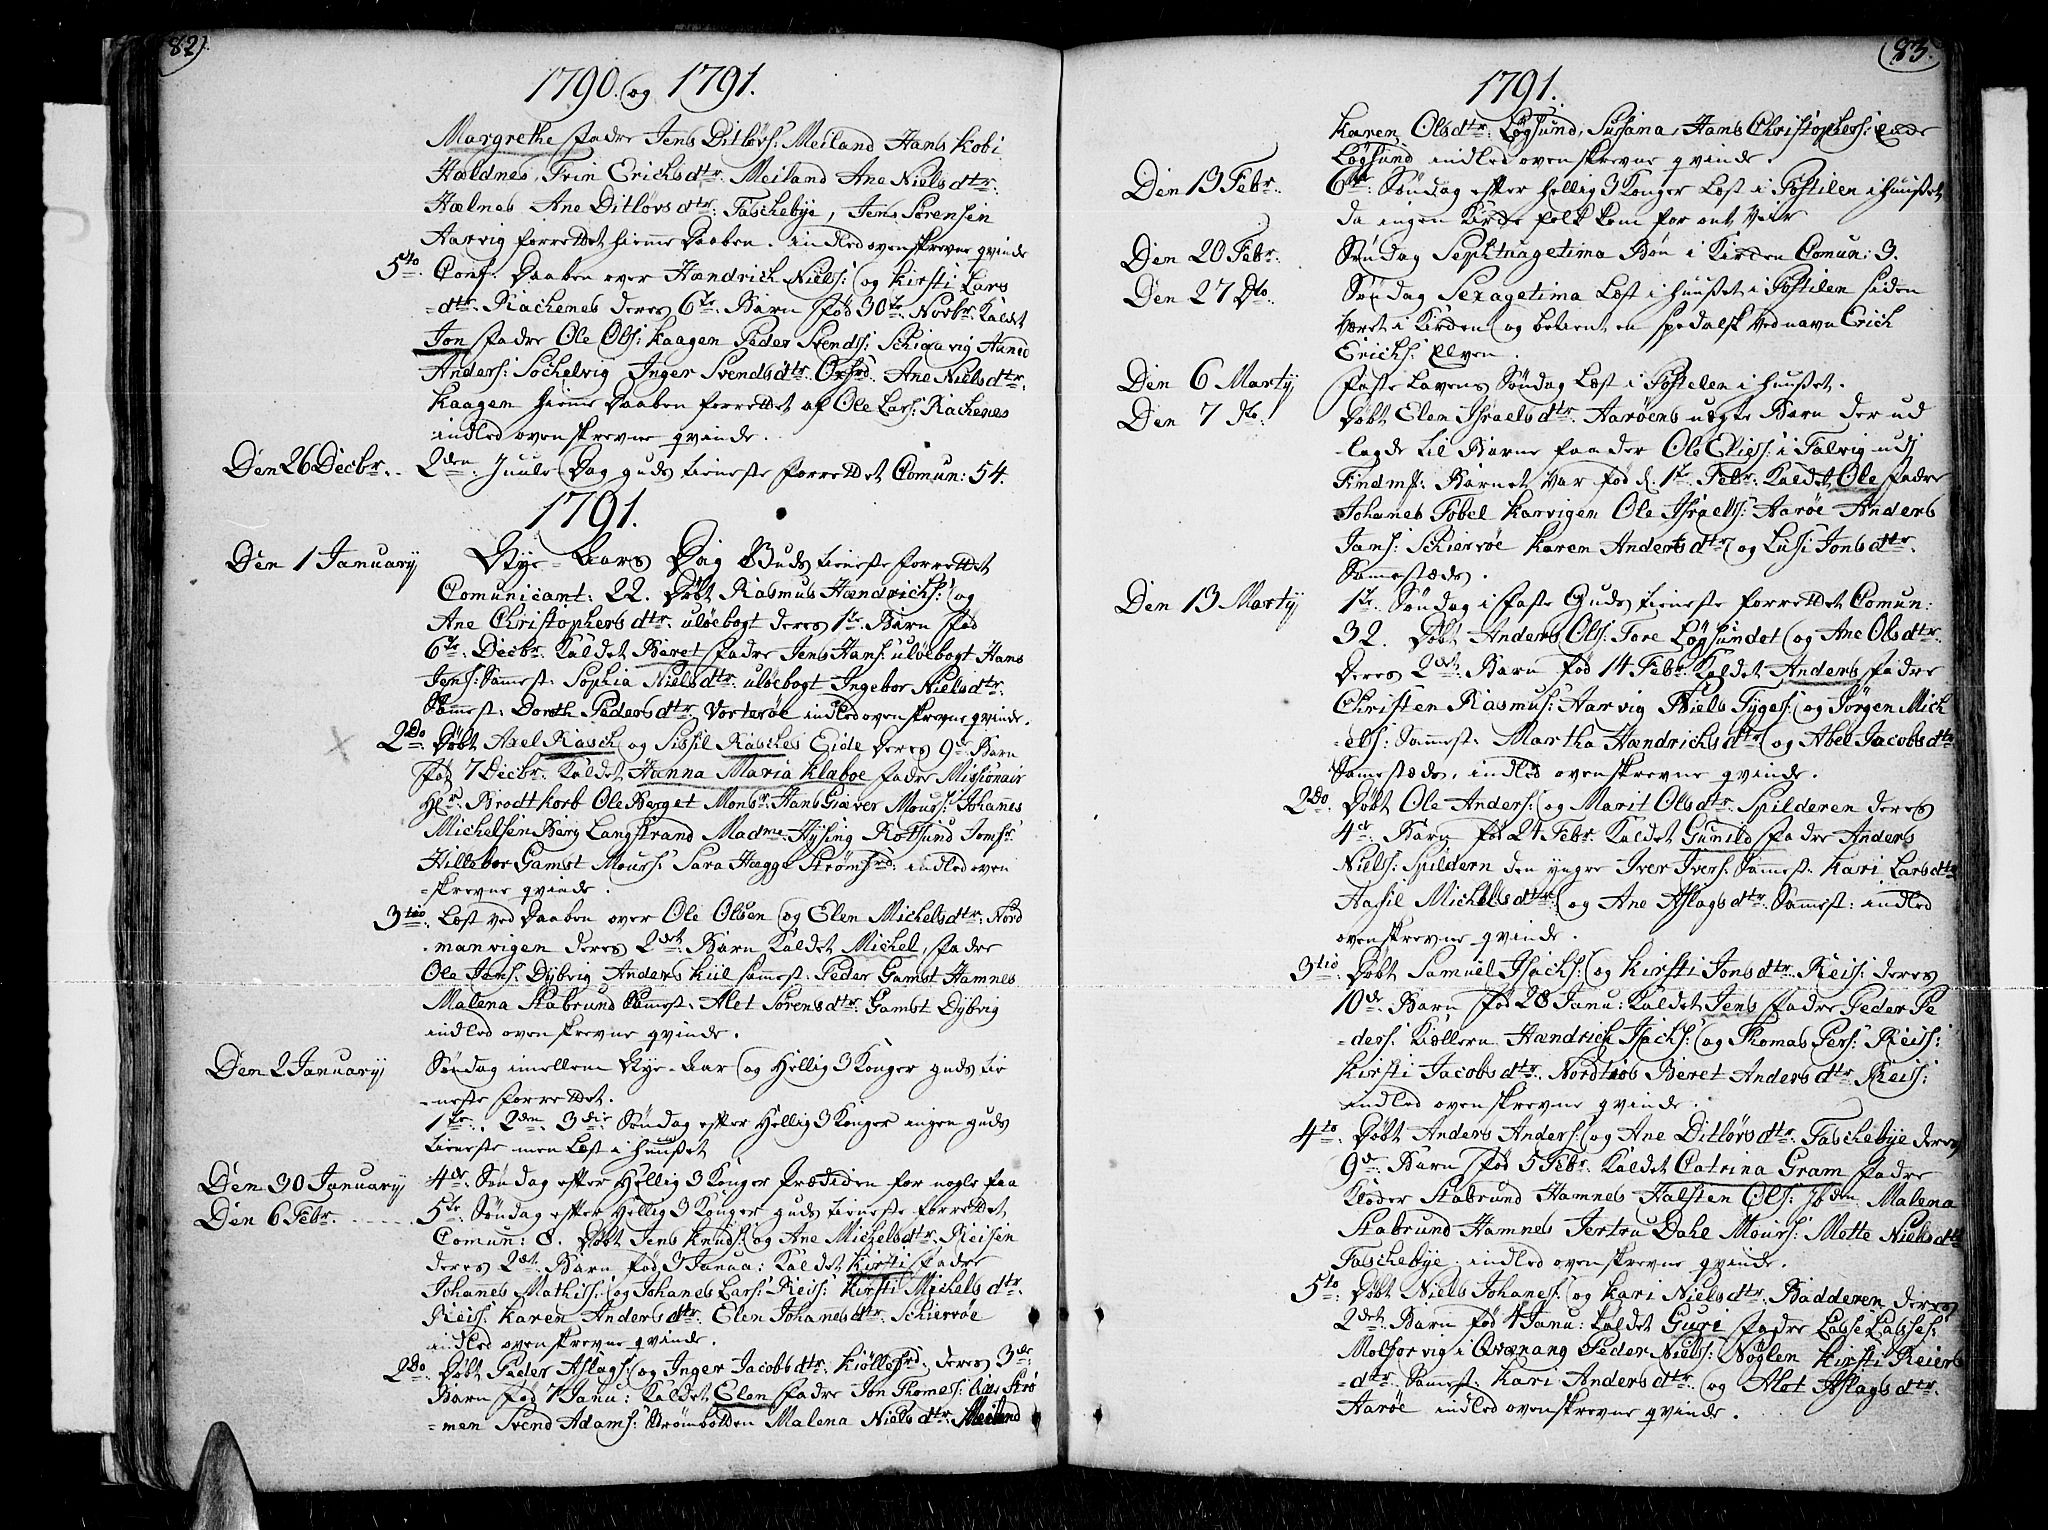 82)
1790. og 1791.
Margrethe fadre Jens Ditløvs: Meiland Hans Kobi
Hældnes, Trin Erichsdtr. Meiland Ane Nielsdtr.
Hælnes Ane Ditløvsdtr: Taschebye, Jens Sørensen
Aarvig forrettet hieme Daaben. indled ovenskrevne qvinde
5to. Conf: Daaben over Hændrich Niels: og Kirsti Lars
=dtr. Rachenes deres 6te Barn fød 30te Novbr. Kaldet
Jon fadre Ole Ols: Kaagen Peder Svends: Aund
Anders: Sochelvig Inger Svendsdtr. Oxfrd. Ane Nielsdtr.
Kaagen hieme Daaben forrettet af Ole Lars: Rachenes
indled ovenskrevne qvinde.
Den 26 Decbr. 2den Juule-Dag guds tieneste forrettet Comun: 54.
1791.
Den 1 January Nye-Aars Dag Guds tieneste forrettet
Comunicant: 22. Døbt Rasmus Hændrichs: og
Ane Christophersdtr. uløebogt deres 1te Barn fød
6te. Decbr. Kaldet Beret fadre Jens Hans: uløebogt Hans
Jens: Sammest: Sophia Nielsdtr. uløebogt Ingebor Nielsdtr.
Sammest: Dorth Pedersdtr. Vorterøe indled ovenskrevne qvinde.
2do. Døbt Axel Rasch og Sissil Rasches Eide deres 9de Barn
fød 7 Decbr. Kaldet Hanna Maria Klæboe fadre Missionair
Hr. Brodtkorb Ole Berget Monsr. Hans Giæver Mours: Johannes
Michelsen Berg Langstrand Madme. Hysing Rotsund Jomfr.
Hillebor Gamst Mours: Sara Hegge Strømfrd: indled oven
=skrevne qvinde.
3tio. Læst ved Daaben over Ole Olsen og Elen Michelsdtr: Nord
manvigen deres 2det. Barn Kaldet Michel, fadre
Ole Jens: Dybvig Anders Kiil Sammest. Peder Gamst Hamnes
Malena Stabrund Sammest. Alet Sørensdtr. Gamst Dybvig
indled ovenskrevne qvinde.
Den 2 January Søndag imellem Nye-Aar og Hellig 3 Konger guds tie
=neste forrettet.
1te. 2den. 3die Søndag efter Hellig 3 Konger ingen guds
tieneste men Læst i huuset
Den 30 January 4de Søndag efter Hellig 3 Konger Prædiken for nogle faa
Den 6 Febr. 5te Søndag efter Hellig 3 Konger guds tieneste forrettet
Comun: 8. Døbt Jens Knuds: og Ane Michelsdtr. Reisen
deres 2det. Barn fød 3 Janua: Kaldet Kirsti fadre
Johannes Mathis: og Johanes Lars: Reis: Kirsti Michelsdtr.
Reis: Karen Andersdtr. Elen Johanesdtr. Schierrøe
indled ovenskrevne qvinde.
2do. Døbt Peder Aslags: og Inger Jacobsdtr. Kiøllefrd: deres 3de
Barn fød 7 Janu: Kaldet Elen fadre Jon Thomes: Strø
=men Svend Adams: Strømbotden Malena Nielsdtr. Meiland
83.
1791.
Karen Olsdtr: Løgsund, Susana, Hans Christophers: Enke
Løgsund indled ovenskrevne qvinde.
Den 13 Febr. 6te Søndag efter Hellig 3 Konger Læst i Postilen i huuset
da ingen Kirke folk kom for ont Veir
Den 20 Febr. Søndag Septuagetima Bøn i Kirken Comun: 3.
Den 27 Dto. Søndag Sexagetima Læst i huuset i Postilen siden
været i Kirken og betient en spedalsk ved navn Erich
Erichs: Elven.
Den 6 Marty faste Lavens Søndag Læst i Postelen i huuset.
Den 7 Dto. Døbt Elen Israelsdtr. Aarøens uægte Barn der ud
=lagde til Barne faader Ole Elies: i Talvig udj
Findm: Barnet var fød d. 1te Febr: Kaldet Ole fadre
Johanes Fobel Karvigen Ole Israels: Aarøe Anders
Jans: Schierrøe Karen Andersdtr. og Lusi Jonsdtr.
Sammestæds.
Den 13 Marty 1te Søndag i faste Guds tieneste forrettet Comun:
32. Døbt Anders Ols: Tore Løgsundet og Ane Olsdtr.
deres 2det Barn fød 14 Febr. Kaldet Anders fadre
Christen Rasmus: Aarvig Niels Tyges: og Jørgen Mich
=els: Sammest: Martha Hændrichsdtr. og Abel Jacobsdtr.
Sammestæds, indled ovenskrevne qvinde.
2do. Døbt Ole Anders: og Marit Olsdtr. Spilderen deres
4de Barn fød 21 Febr. Kaldet Gunild fadre Anders
Niels: Spildern den yngre Iver Ivers: Sammest. Kari Larsdtr.
Hasil Michelsdtr. og Ane Aslagsdtr. Sammest: indled
ovenskrevne qvinde.
3tio. Døbt Samuel Isachs: og Kirsti Jonsdtr. Reis: deres
10de Barn fød 28 Janu: Kaldet Jens fadre Peder Pe
=ders: Kiællern Hændrich Isachs: og Thomas Pers: Reis:
Kirsti Jacobsdtr. Nordtios Beret Andersdtr. Reis:
indled ovenskrevne qvinde.
4to. Døbt Anders Anders: og Ane Ditløvsdtr. Taschebye deres
9de. Barn fød 5 Febr. Kaldet Catrina Gram fadre
Peder Stabrund Hamnes Halsten Ols: Ibdm. Malena
Stabrund Hamnes Jertru Dahl Mours: Mette Nielsdtr
Taschebye. indled ovenskrevne qvinde.
5to. Døbt Niels Johanes: og Kari Nielsdtr. Badderen deres
2det. Barn fød 4 Janu: Kaldet Guri fadre Lasse Lasses:
Molforvig i Qvænang Peder Niels: Nøglen Kirsti Reiers
=dtr. Sammest: Kari Andersdtr. og Alet Aslagsdtr.
Aarøe indled ovenskrevne qvinde.